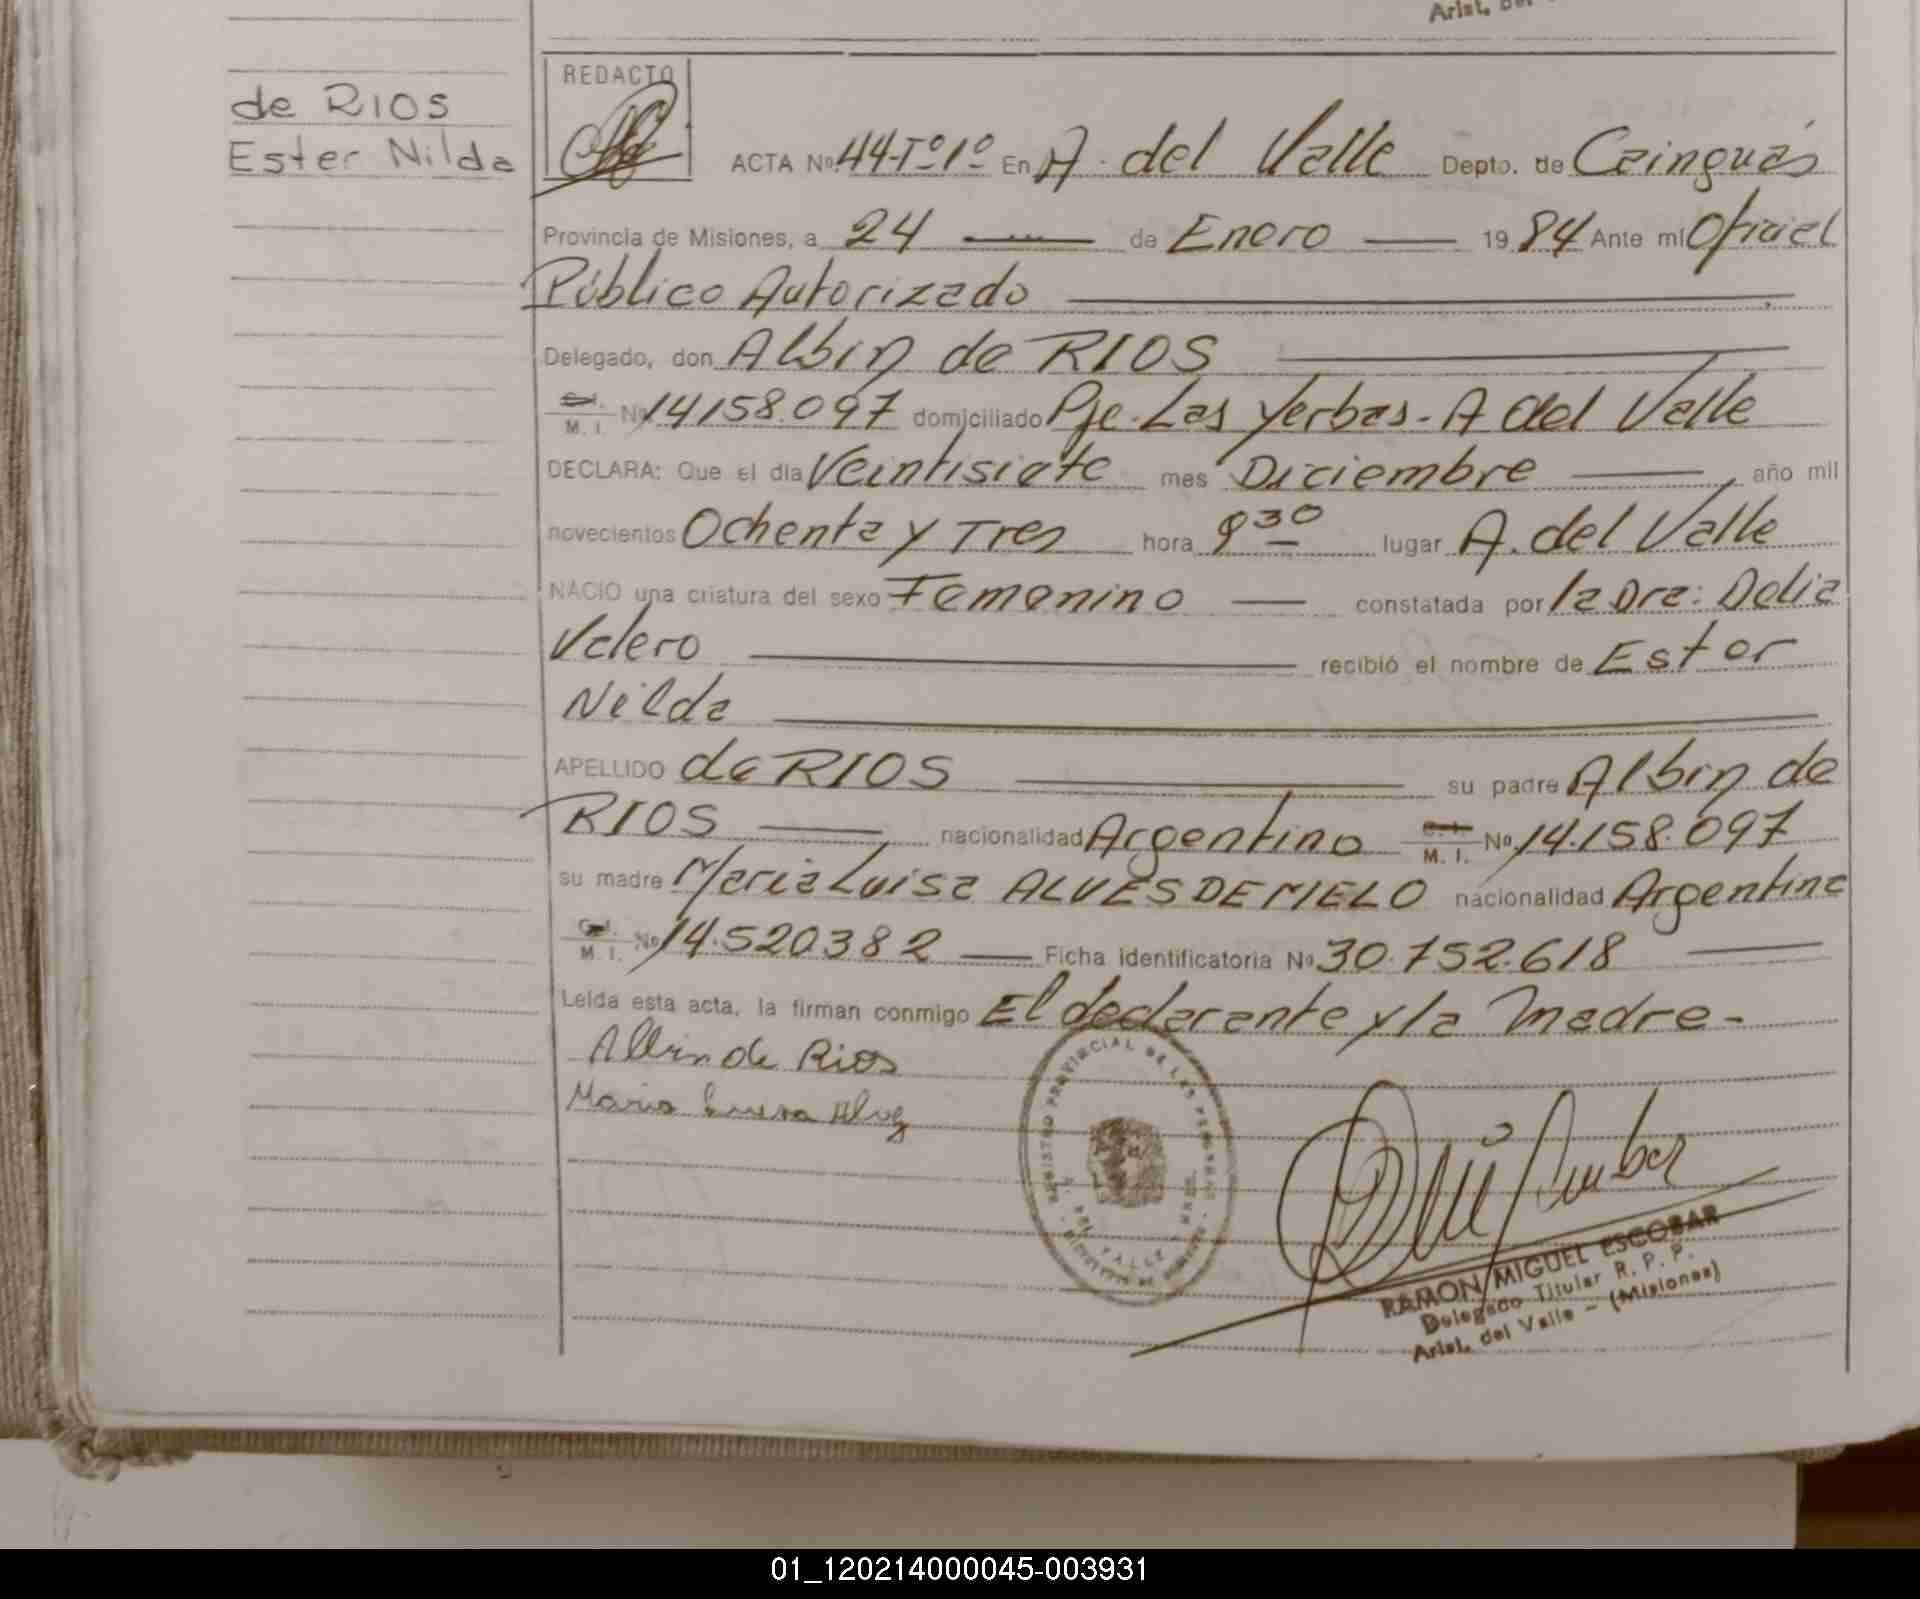 Arist. Del
REDACTO
de RIOS
Ester Nilda
ACTA No. 44-Tº1º En A. del Valle Depto. de Cainguás
Provincia de Misiones, a 24 — de Enero — 19 84 Ante mi Oficial
Público Autorizado
Delegado, don Albin de RIOS
C.I. M. I. No 14158.097 domiciliado Pje. Las Yerbas - A del Valle
DECLARA: Que el día Veintisiete mes Diciembre — año mil
novecientos Ochenta y Tres hora 9 30 lugar A. del Valle
NACIO una criatura del sexo Femenino — constatada por la Dra: Delia
Valero — recibió el nombre de Ester
Nilda
APELLIDO de RIOS — su padre Albin de
RIOS — nacionalidad Argentino C.I. M. I. No. 14.158.097
su madre Maria Luisa ALVES DE MELO nacionalidad Argentina
C.I. M. I. No 14.520382 — Ficha identificatoria No 30.752.618 —
Leída esta acta, la firman conmigo El declarante y la Madre -
Albin de Rios
Maria Luisa Alvez
REGISTRO PROVINCIAL DE LAS PERSONAS
A. DEL VALLE
RAMON MIGUEL ESCOBAR
Delegado Titular R. P. P.
Arist. del Valle - (Misiones)
01_120214000045-003931